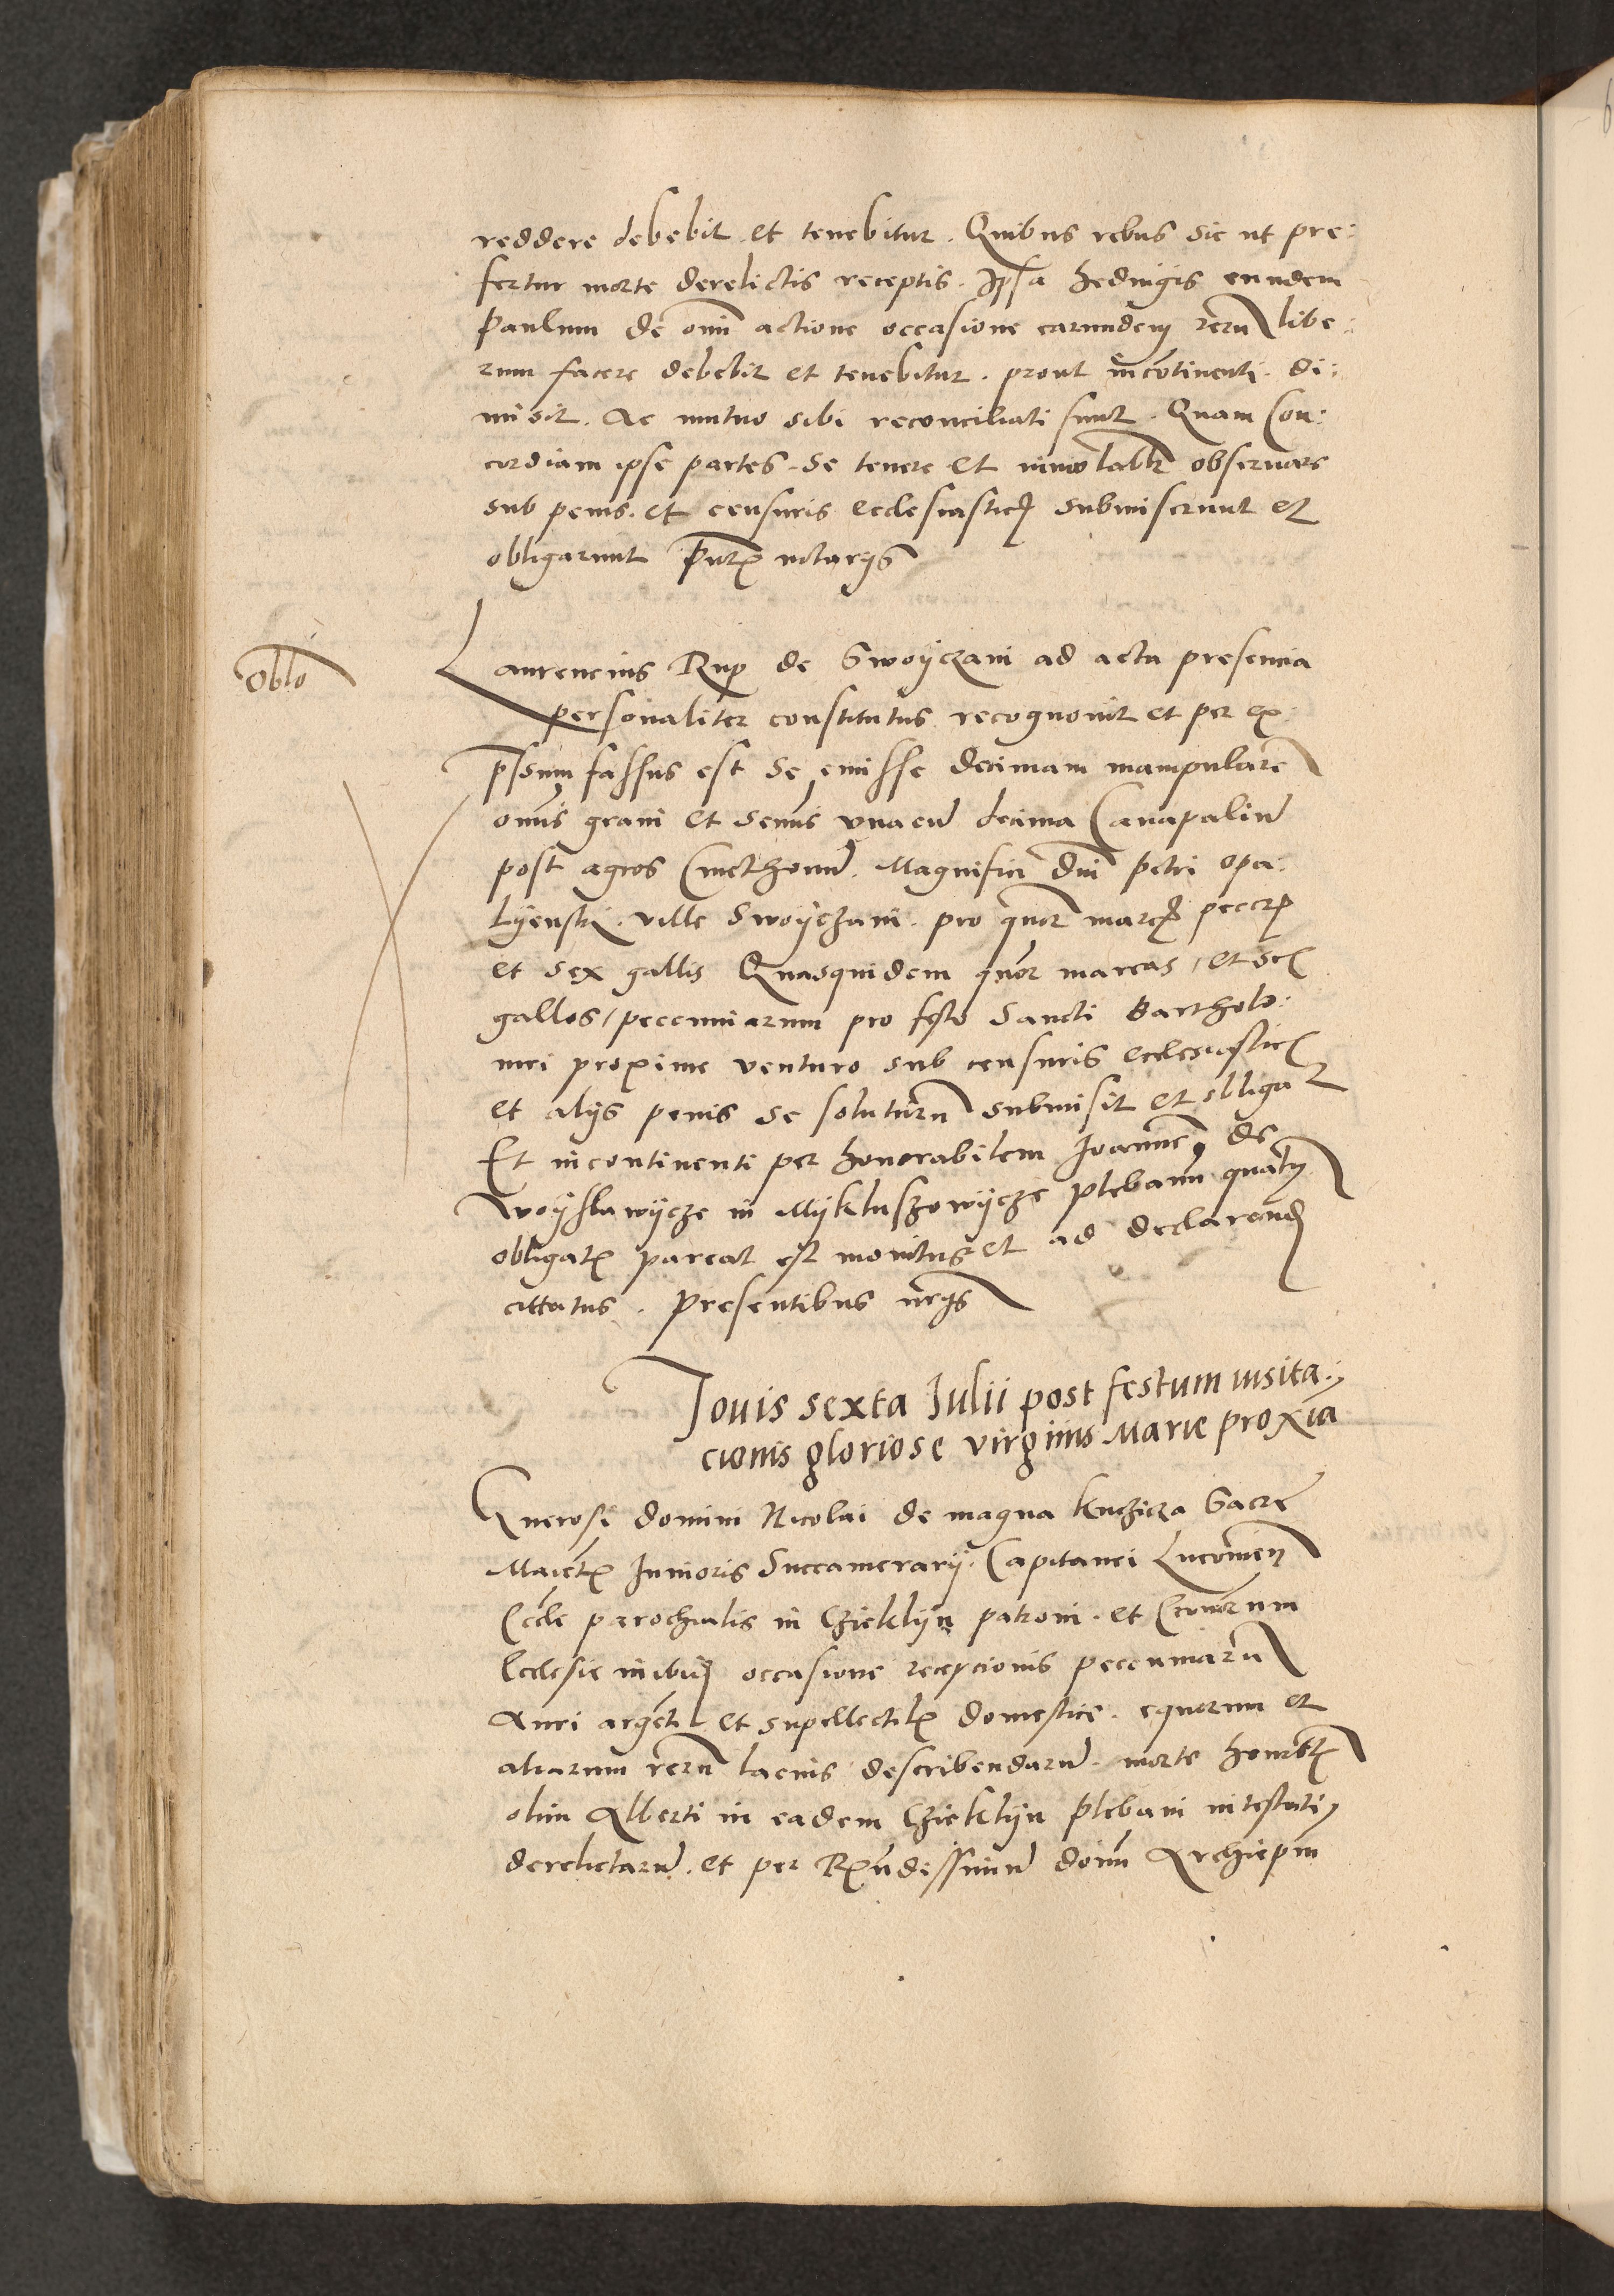 reddere debebit et tenebitur. Quibus rebus sic ut pre:
fertur morte derelictis receptis. Ipsa hedwigis eundem
Paulum de omi actione occasione earundem reru libe:
rum facere debebit et tenebitur. prout incontinenti. di:
misit. Ac mutuo sibi reconciliati sunt. Quam Con:
cordiam ipse partes se tenere et inviolabilr observare
sub penis et censuris ecclesiasticis submiserunt et
obligarunt Pntibus notarijs
Oblo
Laurencius Rup de Swoyczani ad acta presencia
personaliter constitutus recognovit et per ex
pssum fassus est se emisse decimam manipulare
omis grani et semis unacu decima Canapaliu
post agros Cmethonu. Magnifici Dni Petri opa:
lyenski ville Swoyczani. pro quor marcis peccar
et sex gallis Quasquidem quor marcas, et sex
gallos, peccuniarum pro festo Sancti Bartholo:
mei proxime venturo sub censuris ecclesiasticis
et alijs penis se soluturu submisit et obligat
Et incontinenti per honorabilem Joannem de
Woyslawycze in Mykluszowycze plebanu quatus
obligats pareat est monitus et ad declarand
cittatus. Presentibus nrijs
Jovis sexta Julii post festum visita:
cionis gloriose virginis Marie proxia
Generosi domini Nicolai de magna kuchicza Sacre
Maiets Junioris Succamerarij. Capitanei Lucomien
Eccle parochialis in Czieklyn patroni. et
Ecclesie inibi occasione recepcionis peccuniaru
Auri argeti et supellectilis domestice. equorum et
aliarum reru lacius describendaru. morte honorbls
olim Alberti in eadem Czieklyn Plebani intestati
derelictaru. et per Rvndissimu domu Archiepm